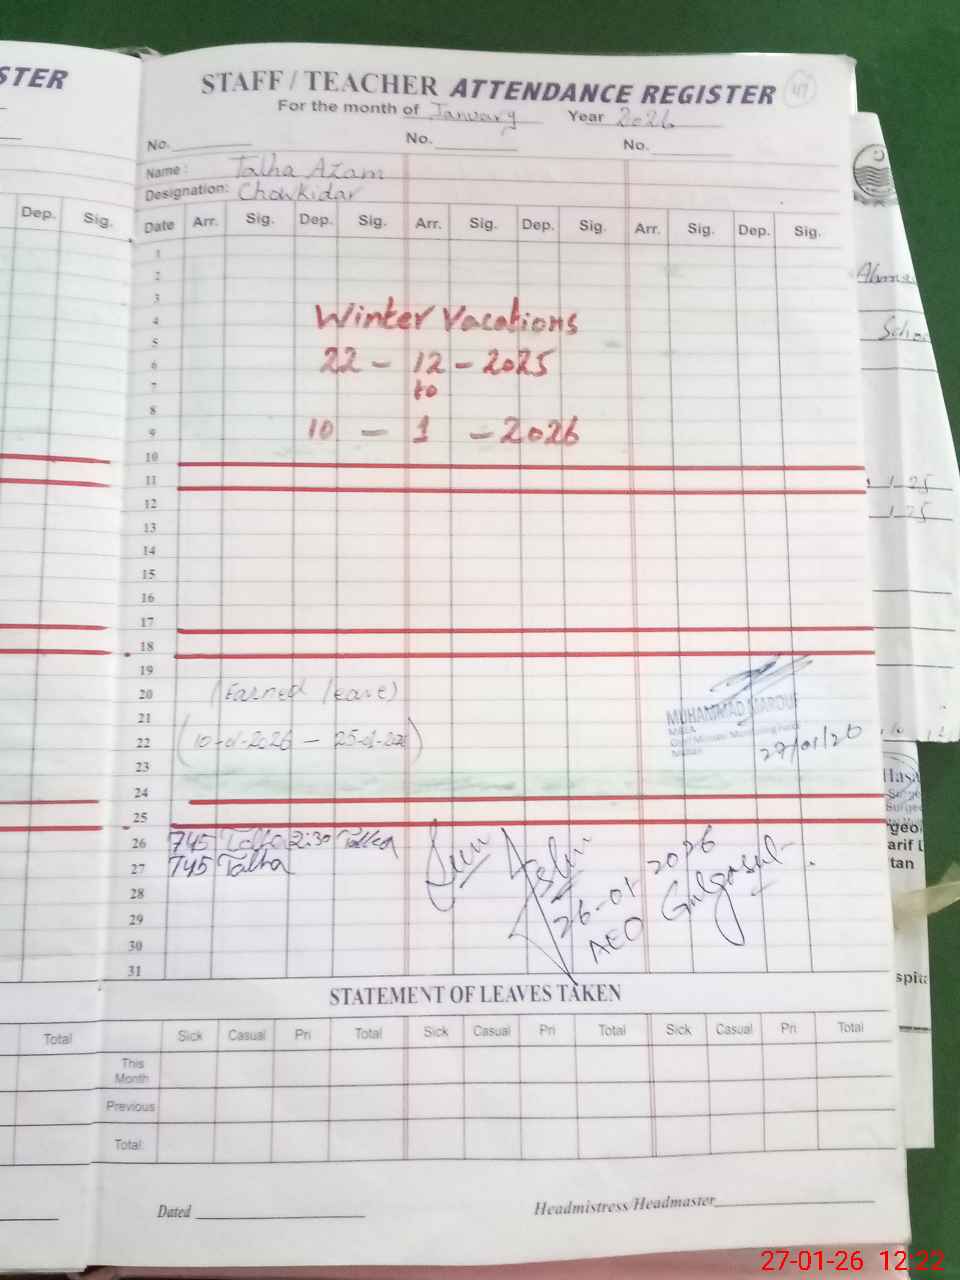 STER
STAFF / TEACHER ATTENDANCE REGISTER
47
For the month of January Year 2026
No. No. No.
Name: Talha Azam
Designation: Chowkidar
Dep. Sig.
Date Arr. Sig. Dep. Sig. Arr. Sig. Dep. Sig. Arr. Sig. Dep. Sig.
1
2
3
4
5
6
7
8
9
10
11
12
13
14
15
16
17
18
19
20
21
22
23
24
25
26
27
28
29
30
31
Winter Vacations
22 - 12 - 2025
to
10 - 1 - 2026
(Earned leave)
(10-01-2026 - 25-01-2026)
MUHAMMAD MAROUF
27/01/26
745 Talha 2:30 Talha
745 Talha
26-01-2026
AEO Gulgasht
STATEMENT OF LEAVES TAKEN
Sick Casual Pri Total Sick Casual Pri Total Sick Casual Pri Total
Total
This Month
Previous
Total:
Dated
Headmistress/Headmaster
1 25
1 25
Hasa
Surge
geo
arif L
tan
spita
27-01-26 12:22